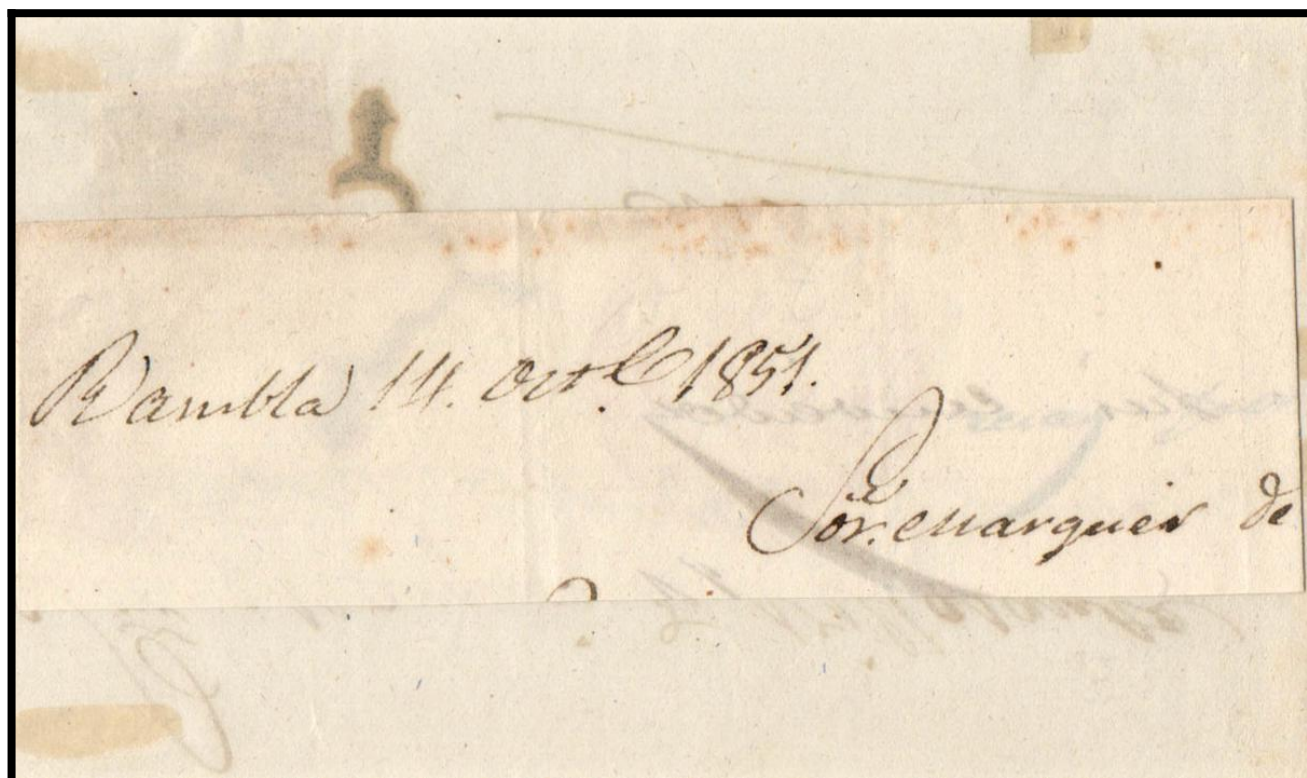 Rambla 14. Oct.e 1851.
Sor. Marques de